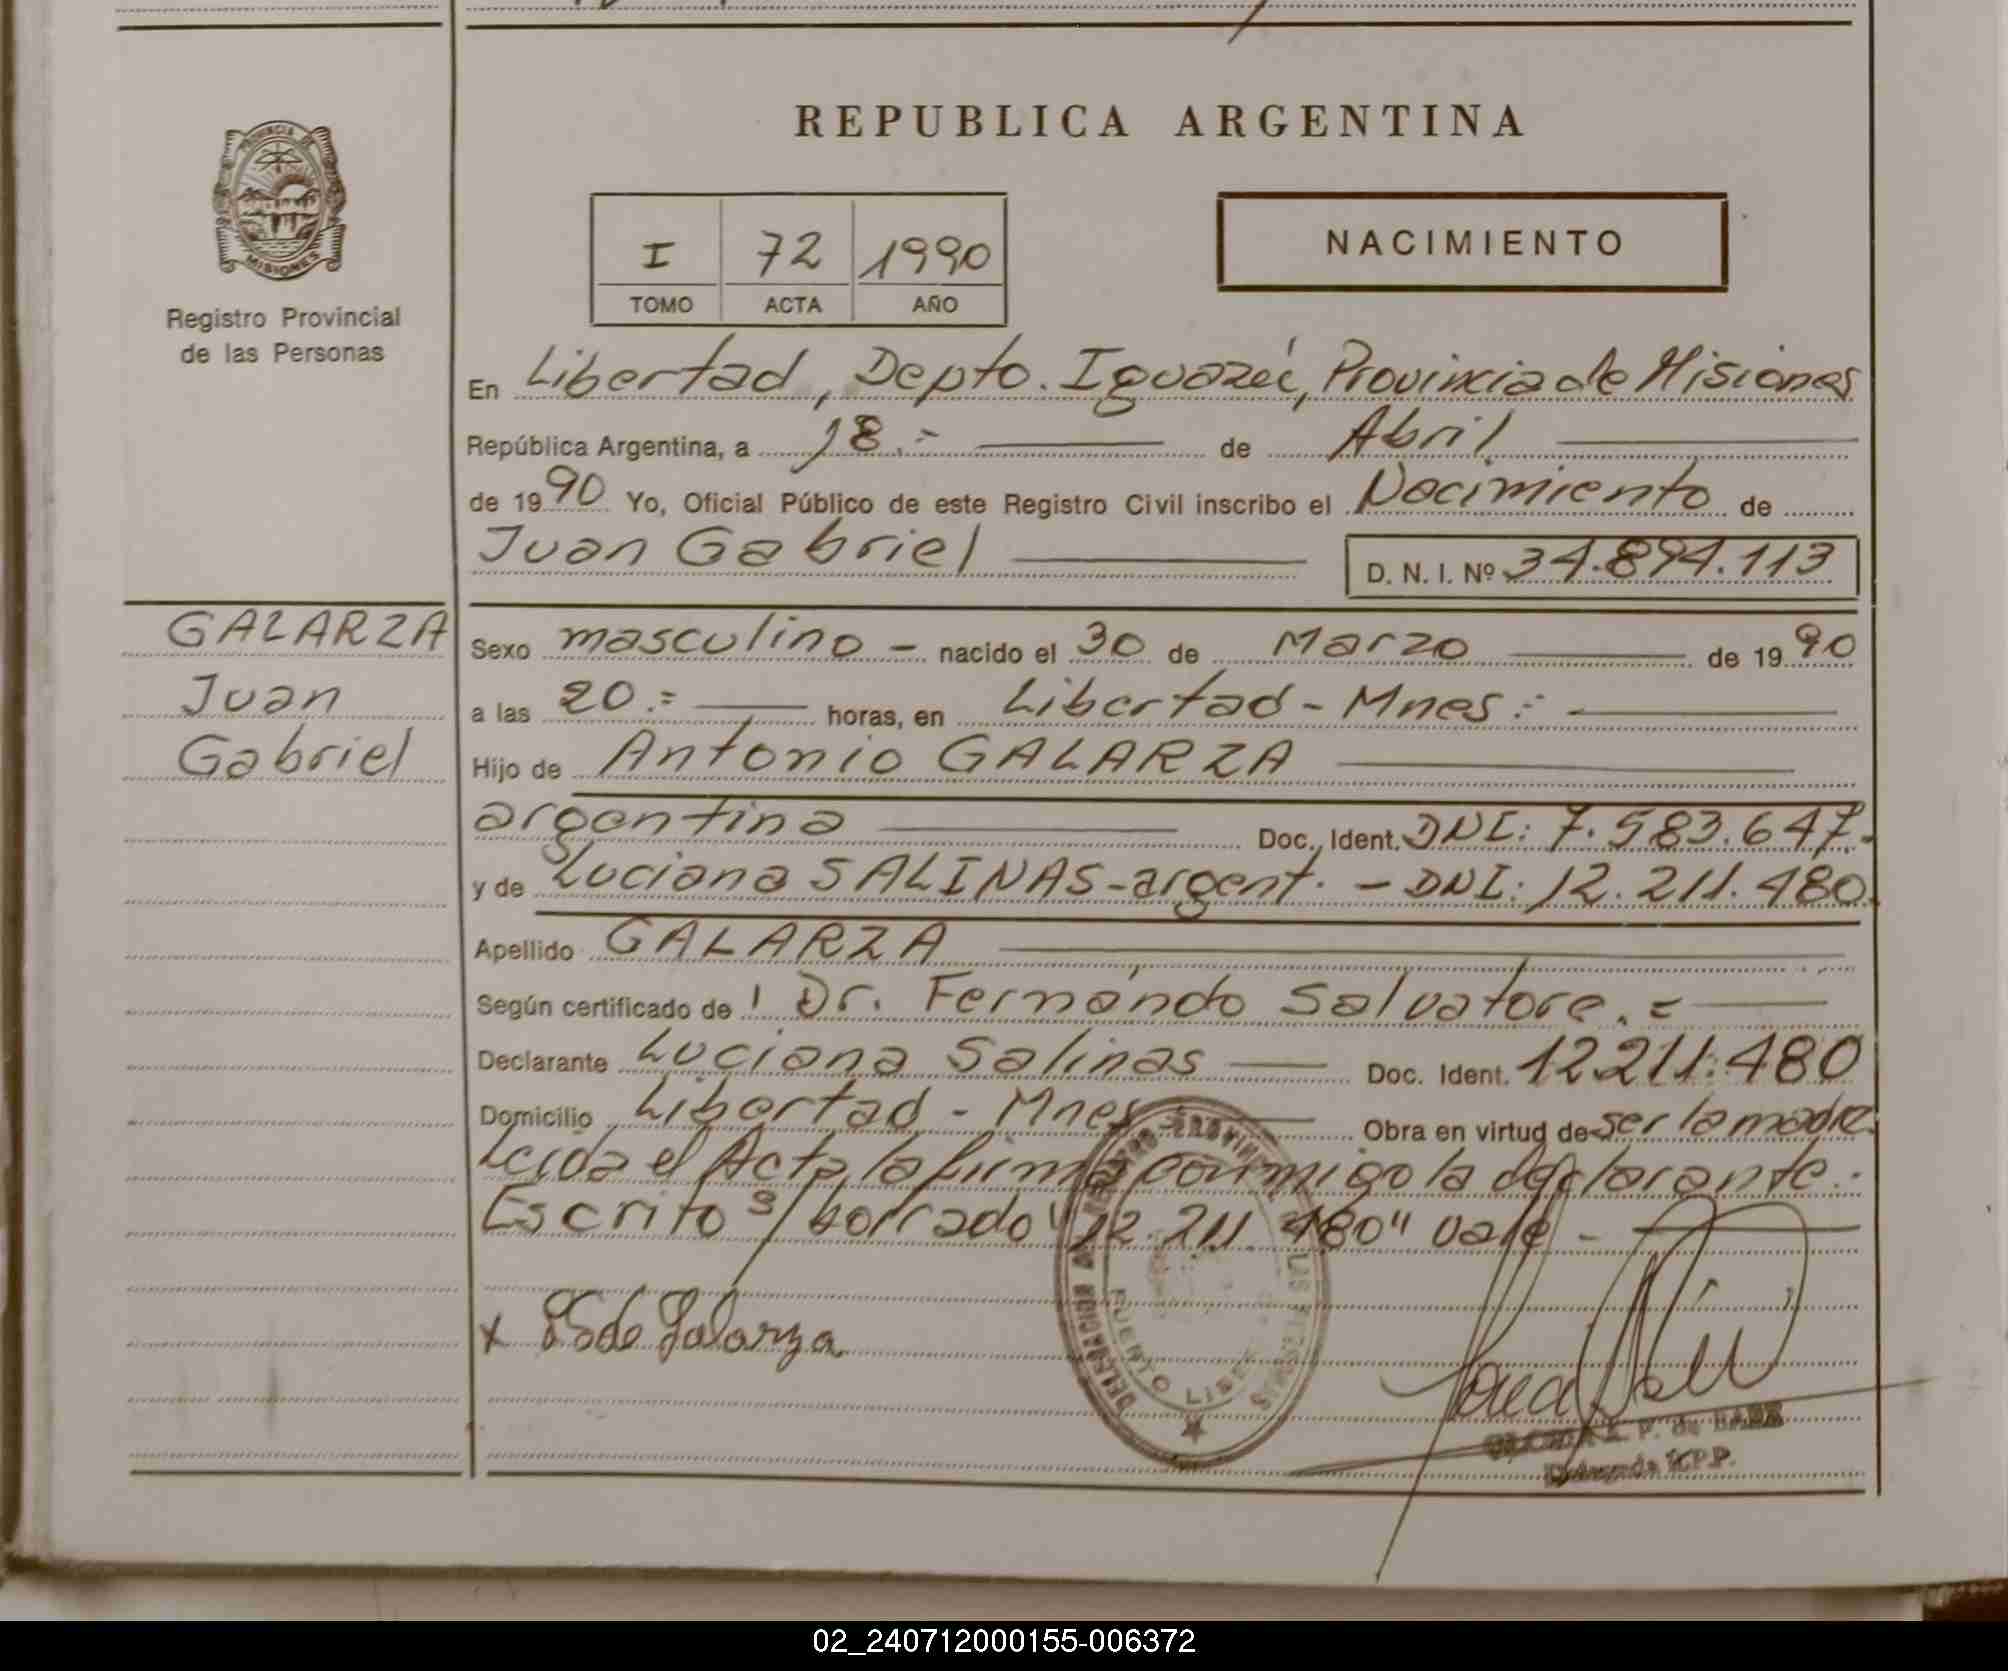 REPUBLICA ARGENTINA
PROVINCIA DE
MISIONES
Registro Provincial
de las Personas
I 72 1990
TOMO ACTA AÑO
NACIMIENTO
En Libertad, Depto. Iguazú, Provincia de Misiones
República Argentina, a 18.- de Abril
de 1990 Yo, Oficial Público de este Registro Civil inscribo el Nacimiento de
Juan Gabriel D. N. I. Nº 34.894.113
GALARZA
Juan
Gabriel
Sexo masculino - nacido el 30 de Marzo de 1990
a las 20.= horas, en Libertad - Mnes:-
Hijo de Antonio GALARZA
argentina Doc. Ident. DNI: 7.583.647.-
y de Luciana SALINAS-argent. - DNI: 12.211.480.
Apellido GALARZA
Según certificado de Dr. Fernando Salvatore. =
Declarante Luciana Salinas Doc. Ident. 12211.480
Domicilio Libertad - Mnes Obra en virtud de ser la madre.
Leida el Acta, la firma conmigo la declarante.-
Escrito s/borrado "12.211.480" vale -
x LS de Galarza
DELEGACION REGISTRO PROVINCIAL DE LAS PERSONAS
PUERTO LIBERTAD
P. de
Delegada R.P.P.
02_240712000155-006372